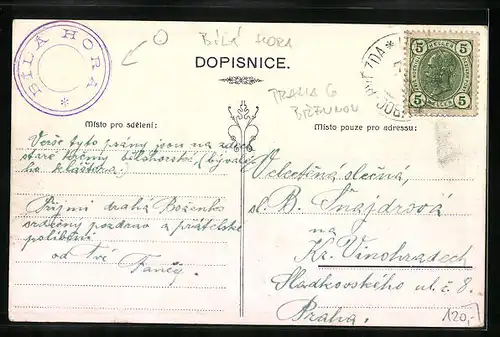 BÍLÁ HORA
BÍLÁ HORA
DOPISNICE.
PRAHA 6
BŘEVNOV
5 HELLER 5
5 HELLER 5
Místo pro sdělení:
Místo pouze pro adresu:
Verše tyto psány jsou na zdech
staré hájovny bělohorské (bývalé-
ho kláštera.)
Přijmi drahá Boženko
srdečný pozdrav a přátelské
políbení
od Tvé
Fančy.
Velectěná slečna,
sl. B. Šnajdrová
na
Kr. Vinohradech
Sladkovského ul. č. 8.
Praha.
120,-